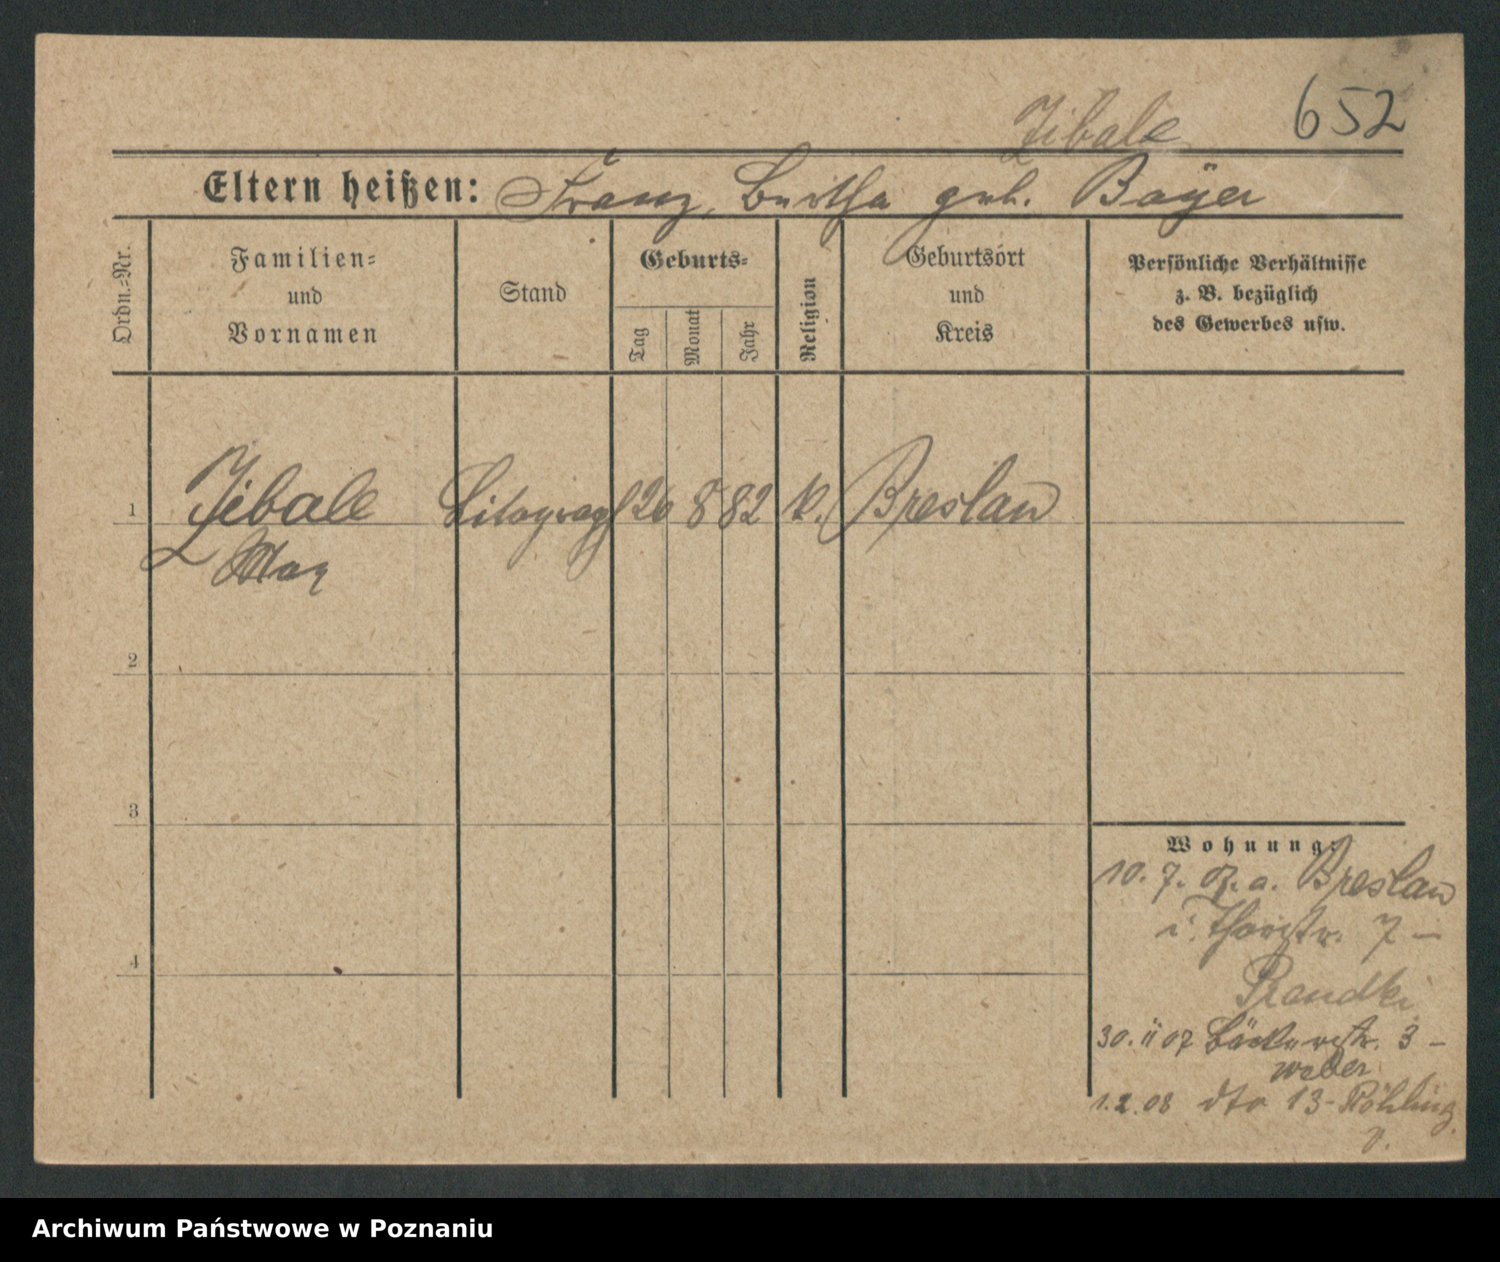 Zibale 652
Eltern heißen: Franz, Bertha geb. Bayer
Ordn.-Nr.
Familien-
und
Vornamen
Stand
Geburts-
Tag
Monat
Jahr
Religion
Geburtsort
und
Kreis
Persönliche Verhältnisse
z. B. bezüglich
des Gewerbes usw.
1 Zibale Litograph 26 8 82 k. Breslau
Max
2
3
4
Wohnung:
10. 7. 07. a. Breslau
i. Thorstr. 7 –
Prandki
30. 11 07 Bäckerstr. 3 –
Weber
1. 2. 08 dto 13 – Röhling